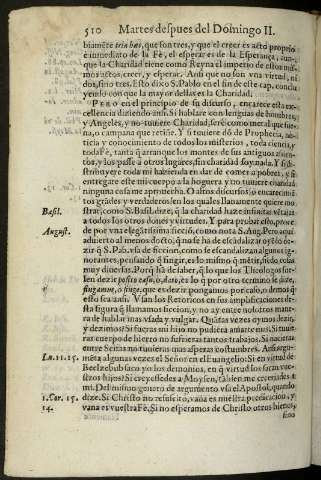 510 Martes despues del Domingo II.
biamẽte tria hæc, que son tres, y que el creer es acto proprio
è inmediato de la Fè, el esperar es de la Esperança, aun-
que la Charidad tiene como Reyna el imperio de estos mis-
mos actos, creer, y esperar. Ansi que no son vna virtud, ni
dos, sino tres. Esto dize S. Pablo en el fin de este cap. conclu
yendo con que la mayor dellas es la Charidad.
PERO en el principio de su discurso, encarece esta ex-
cellencia diziendo ansi. Si hablare con lenguas de hombres,
y Angeles, y no tuviere Charidad, serè como metal que sue-
na, o campana que retiñe. Y si tuviere dõ de Prophecia, no-
ticia y conocimiento de todos los misterios, toda ciencia, y
toda Fè, tanta q̃ arranque los montes de sus antiguos assien-
tos, y los passe à otros lugares, sin charidad soy nada. Y si des-
tribuyere toda mi hazienda en dar de comer a pobres, y si
entregare este mi cuerpo a la hoguera y no tuviere charidad
ninguna cosa me aprovecha. O altos discursos, o encarecimiẽ
tos grãdes y verdaderos! en los quales llanamente quiere mos
Basil. trar, como S. Basil. dize, q̃ la charidad haze infinitas vẽtajas
a todos los otros dones y virtudes. Y para probar esto, proce-
August. de por vna elegãtissima ficcion, como nota S. Aug. Pero aqui
advierto al menos docto, q̃ no se ha de escãdalizar oyẽdo de-
zir q̃ S. Pab. vsa de ficcion, como se escandalizan algunos ig-
norantes, pensando q̃ fingir, es lo mismo q̃ mẽtir, siẽdo cosas
muy diversas. Porq̃ hã de saber, q̃ lo que los Theologos sue-
len dezir posito casu, o, dato, es lo q̃ por otro termino se dize,
fingamus, o finge, que es dezir pongamos por caso, o demos q̃
esto sea ansi. Vsan los Retoricos en sus amplificaciones des-
ta figura q̃ llamamos ficcion, y no ay entre nosotros mane-
ra de hablar mas vsada y vulgar. Quãtas vezes oymos dezir,
y dezimos: Si fueras mi hijo no pudiera amarte mas. Si tuvie-
ras cuerpo de hierro no sufrieras tantos trabajos. Si nacieras
entre fieras no tuvieras mas asperas costumbres. Ansi argu-
Lu. 11. 15. mẽta algunas vezes el Señor en el Euangelio: Si en virtud de
Beelzebub saco yo los demonios, en q̃ virtud los sacan vue-
stros hijos? Si creyessedes a Moysen, tãbien me creeriades a
mi. Del mismo genero de argumento vsa el Apostol, quando
1. Cor. 15. dize. Si Christo no resuscitò, vana es nuestra predicaciõ, y
14. vana es vuestra Fè. Si no esperamos de Christo otros bienes,
sino